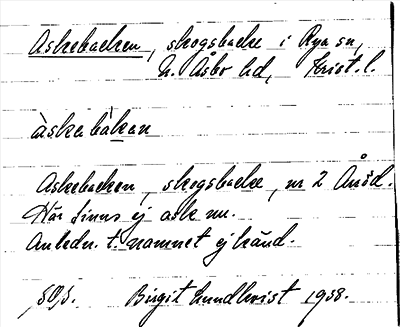 Askebacken, skogsbacke i Rya sn,
N. Åsbo hd, Krist. l.
àskabàkan
Askebacken, skogsbacke, nr 2 Åröd.
Här finns ej ask nu.
Anledn. t. namnet ej känd.
Birgit Lundkvist 1938.